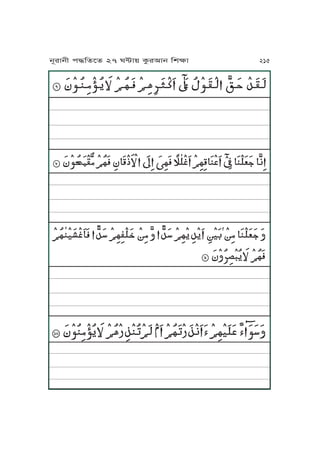 নূরানী পদ্ধতিতে ২৭ ঘণ্টায় কুরআন শিক্ষা ২১৫
لَقَدْ حَقَّ الْقَوْلُ عَلٰٓى اَكْثَرِهِمْ فَهُمْ لَا يُؤْمِنُوْنَ ۞
اِنَّا جَعَلْنَا فِىْٓ اَعْنَاقِهِمْ اَغْلٰلًا فَهِىَ اِلَى الْاَذْقَانِ فَهُمْ مُّقْمَحُوْنَ ۞
وَ جَعَلْنَا مِنْۢ بَيْنِ اَيْدِيْهِمْ سَدًّا وَّ مِنْ خَلْفِهِمْ سَدًّا فَاَغْشَيْنٰهُمْ
فَهُمْ لَا يُبْصِرُوْنَ ۞
وَسَوَآءٌ عَلَيْهِمْ ءَاَنْذَرْتَهُمْ اَمْ لَمْ تُنْذِرْهُمْ لَا يُؤْمِنُوْنَ ۞